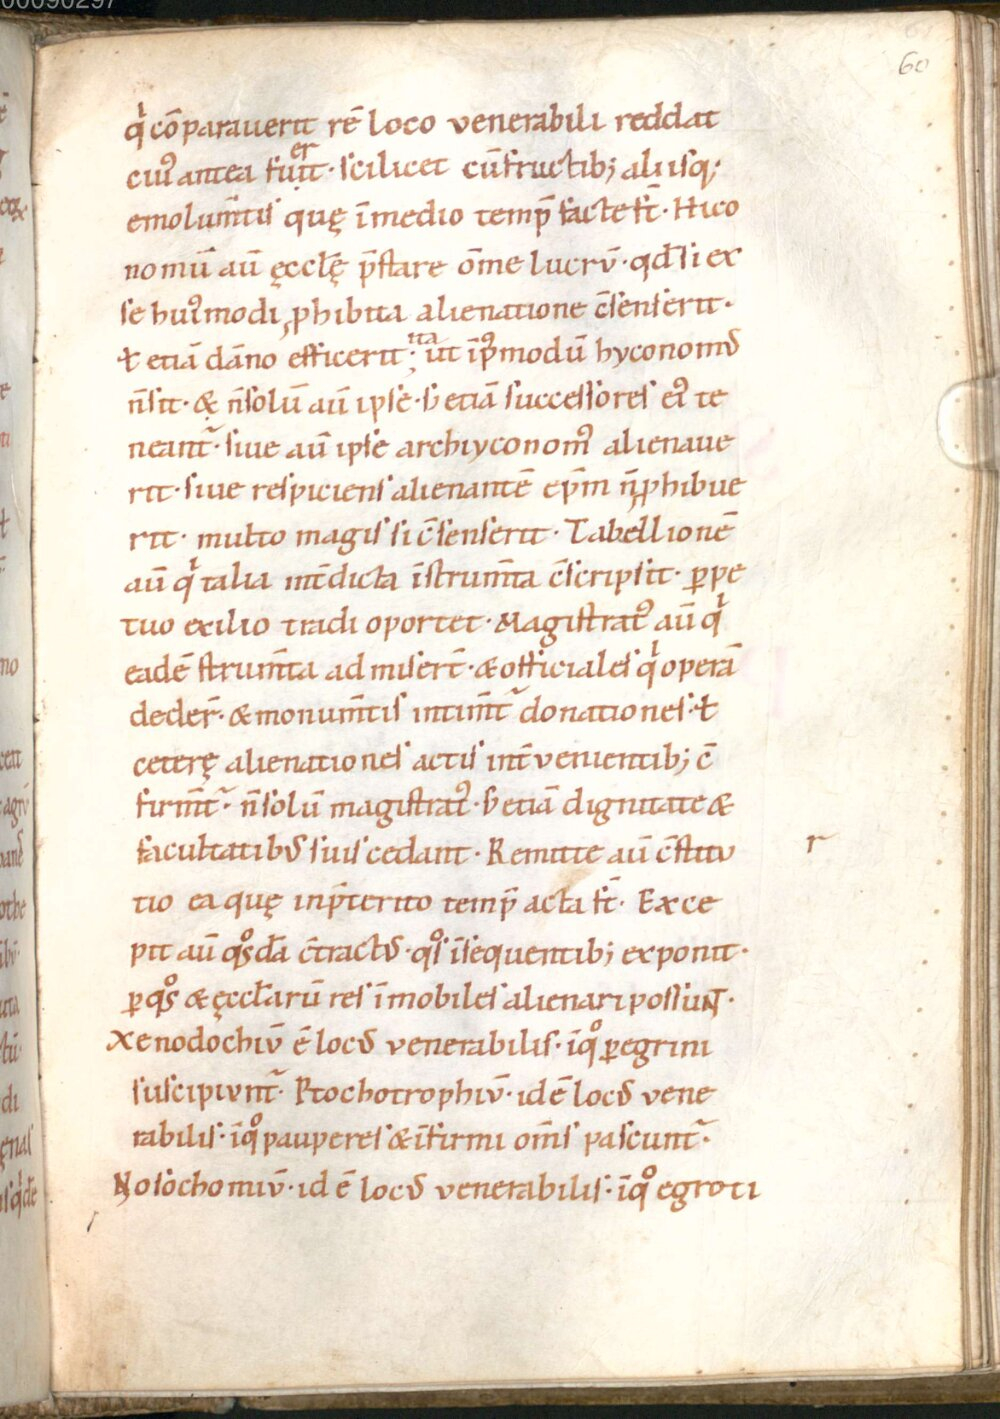 00090297
60
qͥ cōparauerit rē loco venerabili reddat
cuiꝰ antea fuerit · scilicet cū fructib; aliisq;
emolum̄tis quę ī medio temp̄ facte s̄t · Hico
nomū aū ęccłę p̄stare om̄e lucrū · qđ si ex
se huiꝰmodi ꝓhibita alienatione c̄senserit ·
ł etiā dāno efficerit; ita ut īpꝰmodū hyconomꝰ
n̄ sit · & n̄ solū aū ipse · s; etiā successores eiꝰ te
neant᷑ · siue aū ipse archiyconomꝰ alienaue
rit · siue respiciens alienantē ep̄m n̄ ꝓhibue
rit · multo magis si c̄senserit · Tabellionē
aū qͥ talia int̄dicta īstrum̄ta c̄scripsit · ꝑpe
tuo exilio tradi oportet · Magistratꝰ aū qͥ
eadē strum̄ta admisert̄ · & officiales qͥ operā
deder̄ · & monum̄tis intim̄t᷑ donationes · ł
ceterę alienationes actis int̄venientib; c̄
firm̄t᷑ · n̄ solū magistratꝰ · s; etiā dignitate &
facultatibꝰ suis cedant · Remitte aū c̄stitu
r
tio ea quę in p̄terito temp̄ acta s̄t · Exce
pit aū qͦsdā c̄tractꝰ · qͦs īsequentib; exponit ·
ꝑ qͦs & ęccłarū res īmobiles alienari possunt ·
Xenodochiū ē locꝰ venerabilis · ī qͦ ꝑegrini
suscipiunt᷑ · Ptochotrophiū · id ē locꝰ vene
rabilis · ī qͦ pauperes & īfirmi om̄s pascunt᷑ ·
Nosochomiū · id ē locꝰ venerabilis · ī qͦ egroti